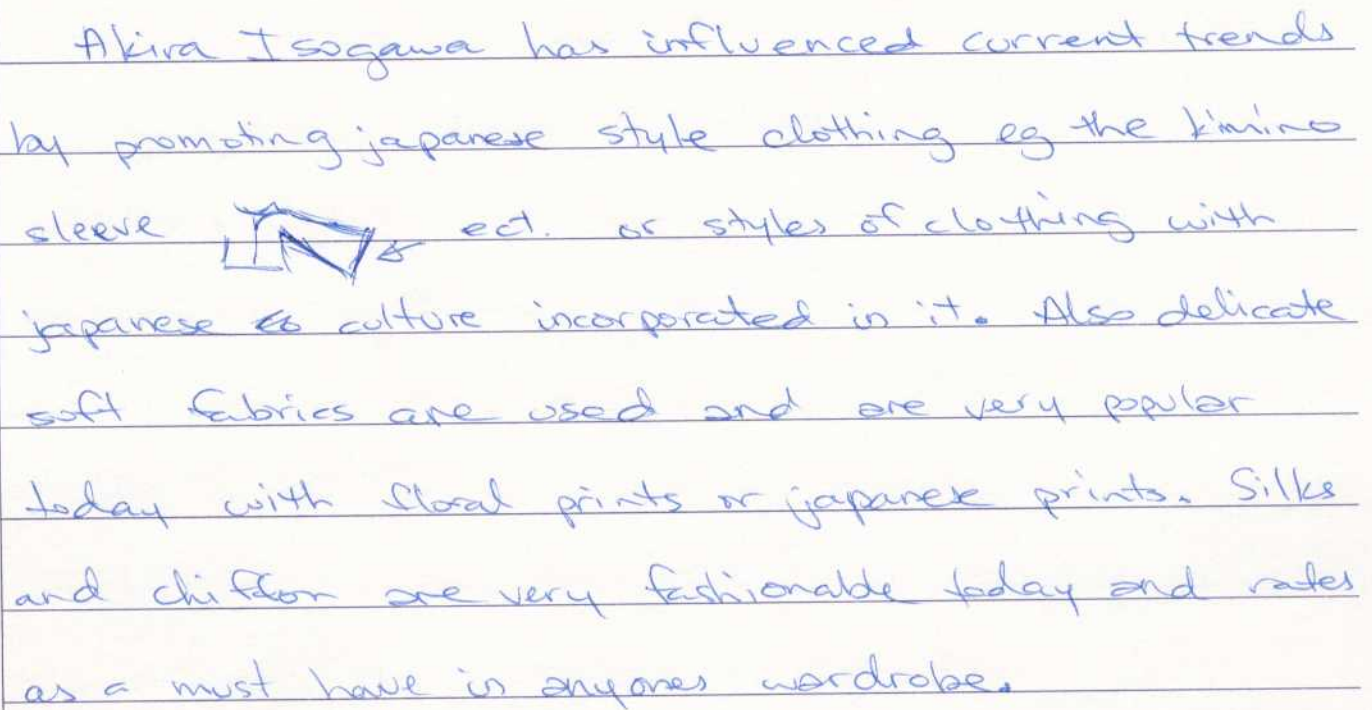 Akira Isogawa has influenced current trends
by promoting japanese style clothing eg the kimino
sleeve ect. or styles of clothing with
japanese culture incorporated in it. Also delicate
soft fabrics are used and are very popular
today with floral prints or japanese prints. Silks
and chiffon are very fashionable today and rates
as a must have in anyones wardrobe.